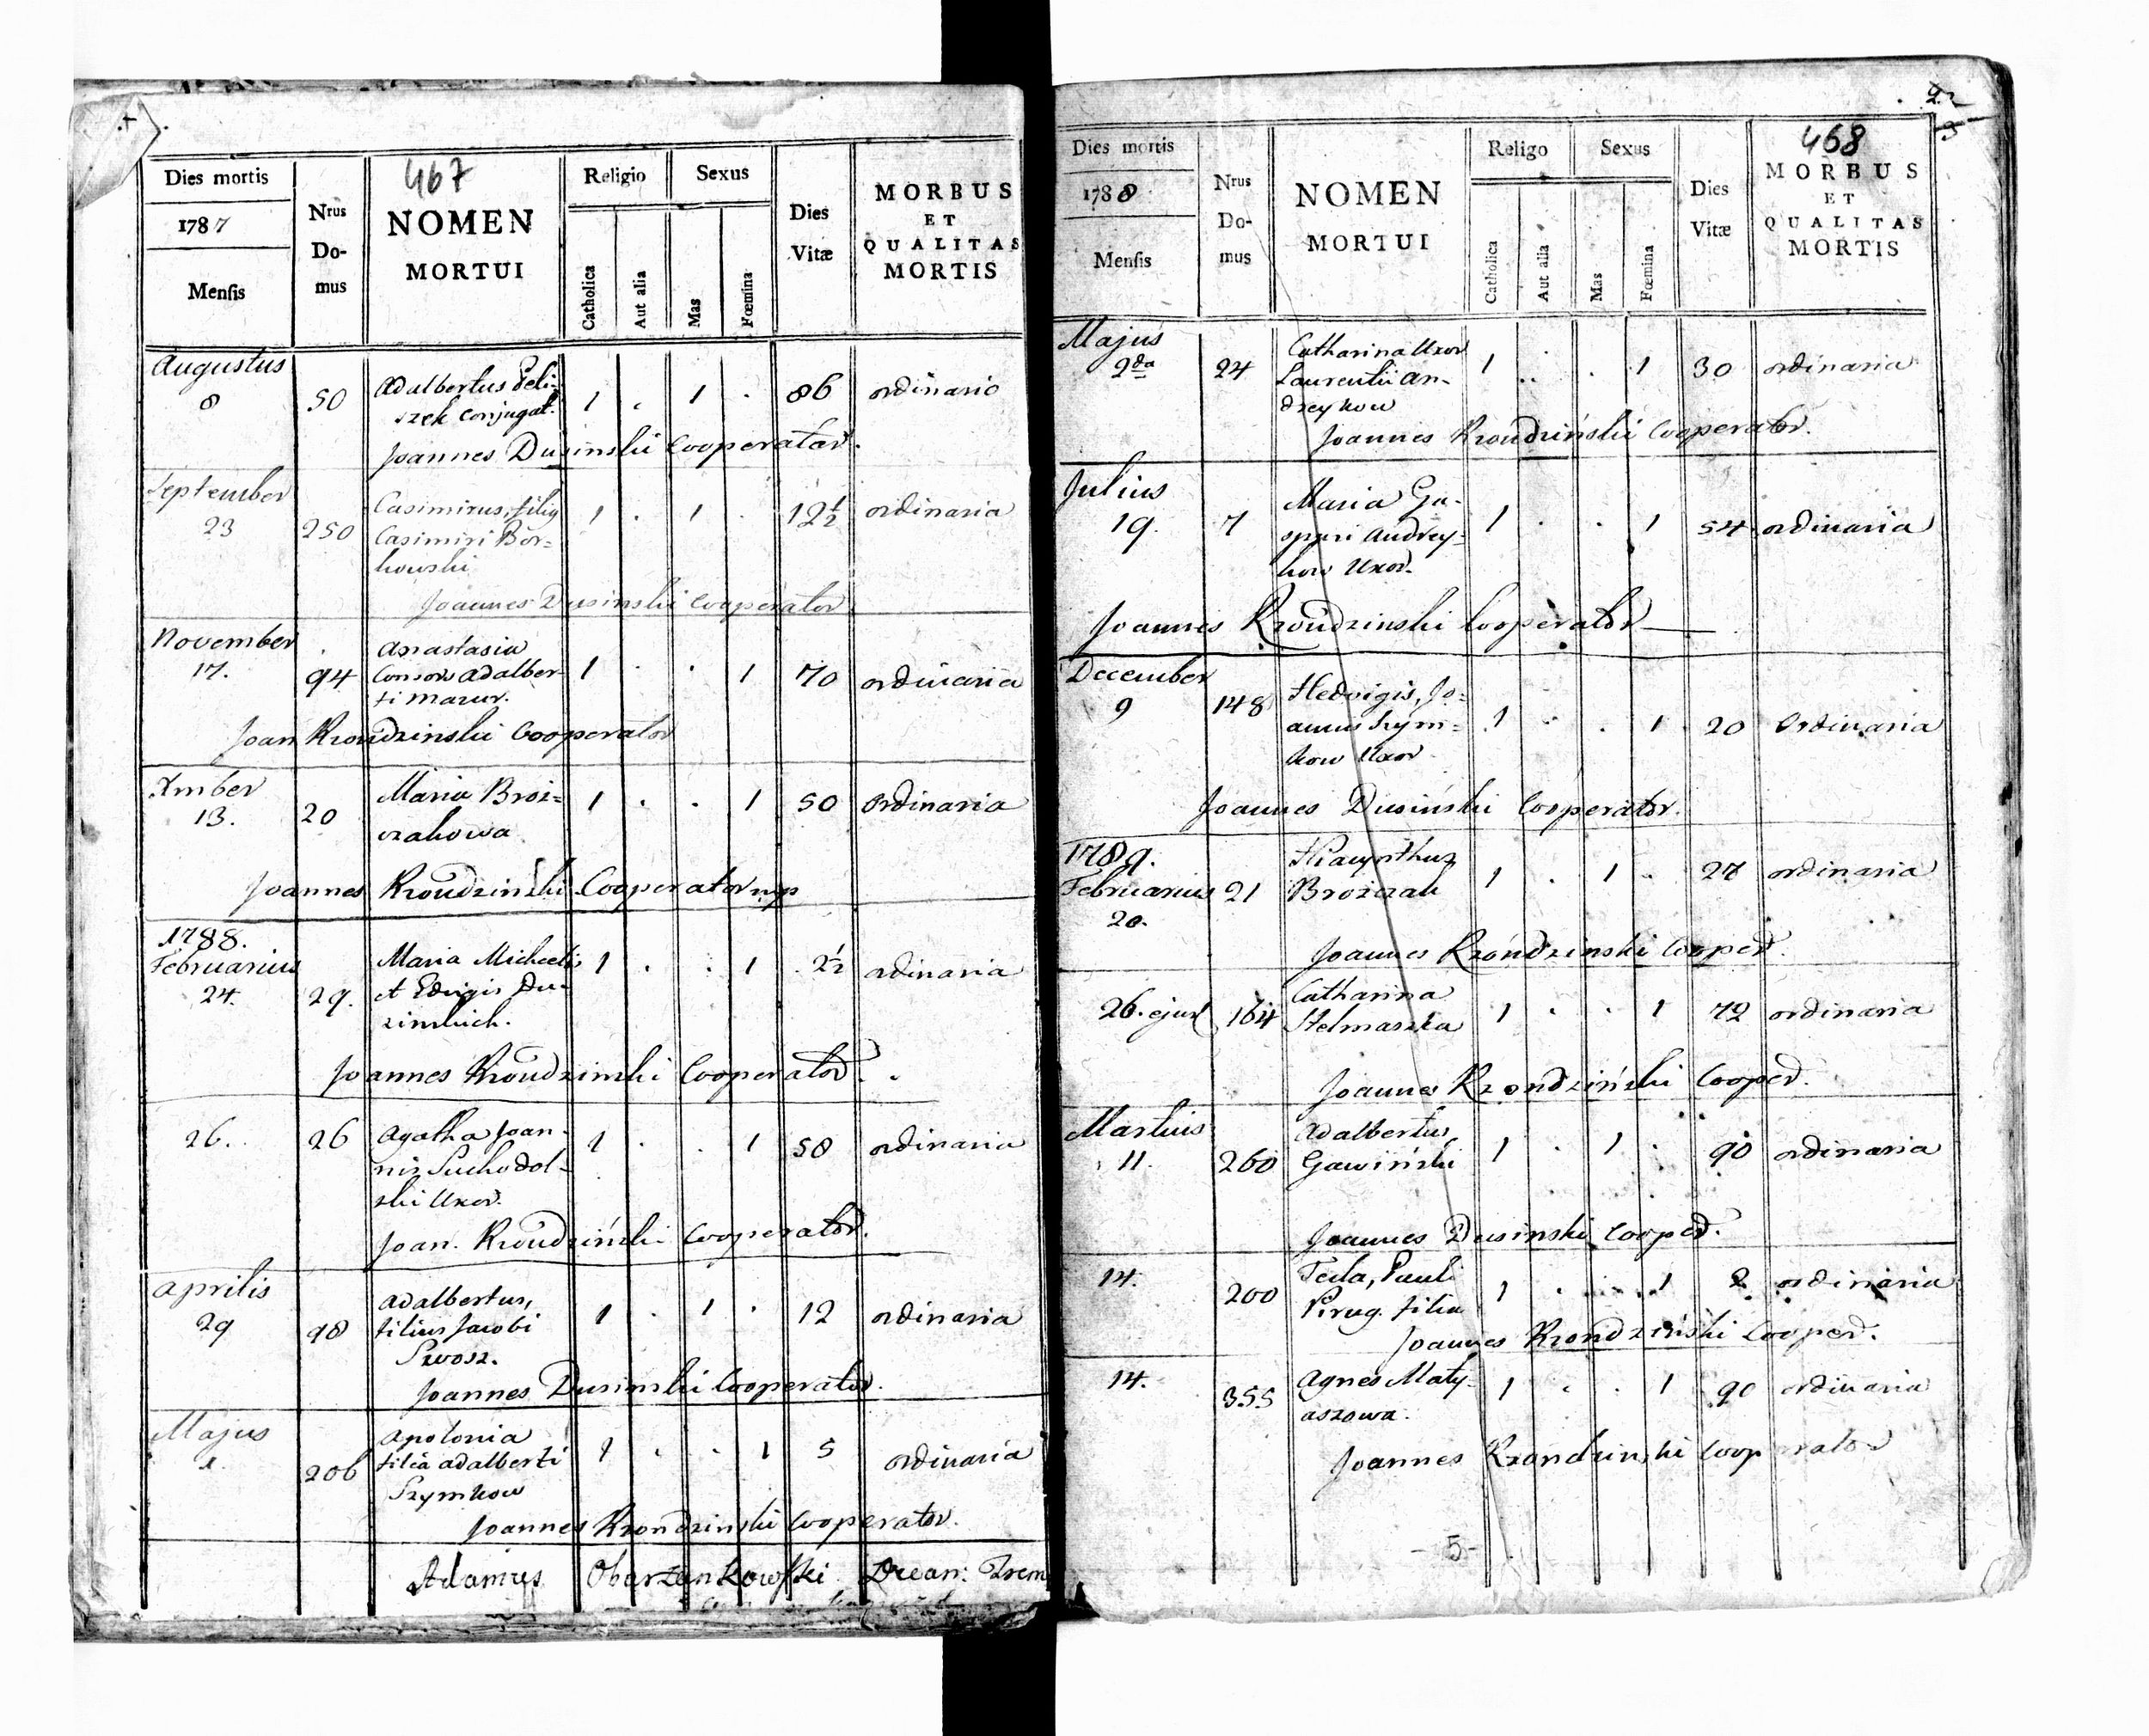 467
Dies mortis
1787
Mensis
Nrus Do-mus
NOMEN
MORTUI
Religio
Catholica
Aut alia
Sexus
Mas
Fœmina
Dies
Vitæ
MORBUS
ET
QUALITAS
MORTIS
Augustus
8 50 Adalbertus Peli- 1 . 1 . 86 ordinario
szek conjugat.
Joannes Dusinski Cooperator.
September
23 250 Casimirus, filius 1 . 1 . 12½ ordinaria
Casimiri Bor=
kowski
Joannes Dusinski Cooperator
November
17. 94 Anastasia 1 . . 1 70 ordinaria
Consors Adalber
ti Mazur.
Joan Krondzinski Cooperator
Xmber
13. 20 Maria Broż= 1 . . 1 50 ordinaria
czakowa
Joannes Krondzinski Cooperator mp
1788.
Februarius
24. 29. Maria Michaelis 1 . . 1 2½ ordinaria
et Edvigis Du-
zinskich.
Joannes Krondzinski Cooperator.
26. 26 Agatha Joan- 1 . . 1 58 ordinaria
nis Suchodol-
ski Uxor.
Joan. Krondziński Cooperator.
Aprilis
29 98 Adalbertus, 1 . 1 . 12 ordinaria
filius Jacobi
Joannes Dusinski Cooperator.
Majus
1. 206 Apolonia 1 . . 1 5 ordinaria
filia Adalberti
Szymkow
Joannes Krondzinski Cooperator.
Adamus Obarzankowski Decan:
468
Dies mortis
1788
Mensis
Nrus Do-mus
NOMEN
MORTUI
Religo
Catholica
Aut alia
Sexus
Mas
Fœmina
Dies
Vitæ
MORBUS
ET
QUALITAS
MORTIS
Majus
2da 24 Catharina Uxor 1 . . 1 30 ordinaria
Laurentii An-
dreykow
Joannes Krondziński Cooperator.
Julius
19. 7 Maria Ga- 1 . . 1 54 ordinaria
spari Andrey=
kow Uxor.
Joannes Krondzinski Cooperator
December
9 148 Hedvigis, Jo= 1 . . 1 20 Ordinaria
annis Szym=
kow Uxor
Joannes Dusiński Cooperator.
1789.
Februarius 21 Hiacynthus 1 . 1 . 27 ordinaria
20. Brożczak
Joannes Krondzinski Cooper.
26. ejusd 164 Catharina 1 . . 1 72 ordinaria
Stelmaszka
Joannes Krondziński Cooper.
Martius
11. 260 Adalbertus 1 . 1 . 90 ordinaria
Gawiński
Joannes Dusinski Cooper.
14. 200 Tecla, Pauli 1 . . 1 2 ordinaria
Pirug. filia
Joannes Krondziński Cooper.
14. 355 Agnes Maty- 1 . . 1 90 ordinaria
aszowa.
Joannes Krondzinski Cooperator
- 5 -